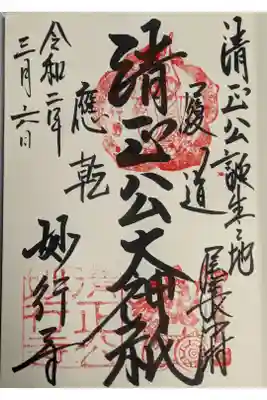 清正公誕生之地
履道
清正公大神祇
應乾
令和二年
三月六日
妙行寺